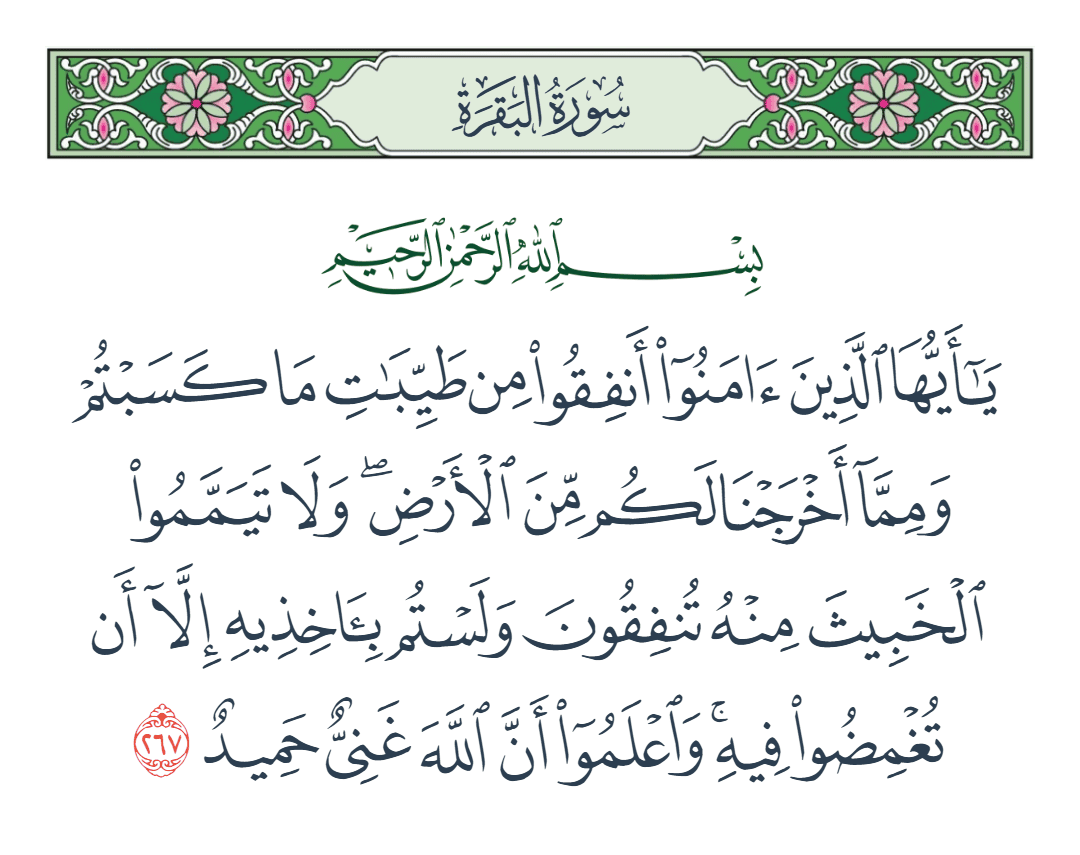 سُورَةُ البَقَرَةِ
بِسْمِ ٱللَّهِ ٱلرَّحْمَٰنِ ٱلرَّحِيمِ
يَـٰٓأَيُّهَا ٱلَّذِينَ ءَامَنُوٓا۟ أَنفِقُوا۟ مِن طَيِّبَـٰتِ مَا كَسَبْتُمْ
وَمِمَّآ أَخْرَجْنَا لَكُم مِّنَ ٱلْأَرْضِ ۖ وَلَا تَيَمَّمُوا۟
ٱلْخَبِيثَ مِنْهُ تُنفِقُونَ وَلَسْتُم بِـَٔاخِذِيهِ إِلَّآ أَن
تُغْمِضُوا۟ فِيهِ ۚ وَٱعْلَمُوٓا۟ أَنَّ ٱللَّهَ غَنِىٌّ حَمِيدٌ ٢٦٧